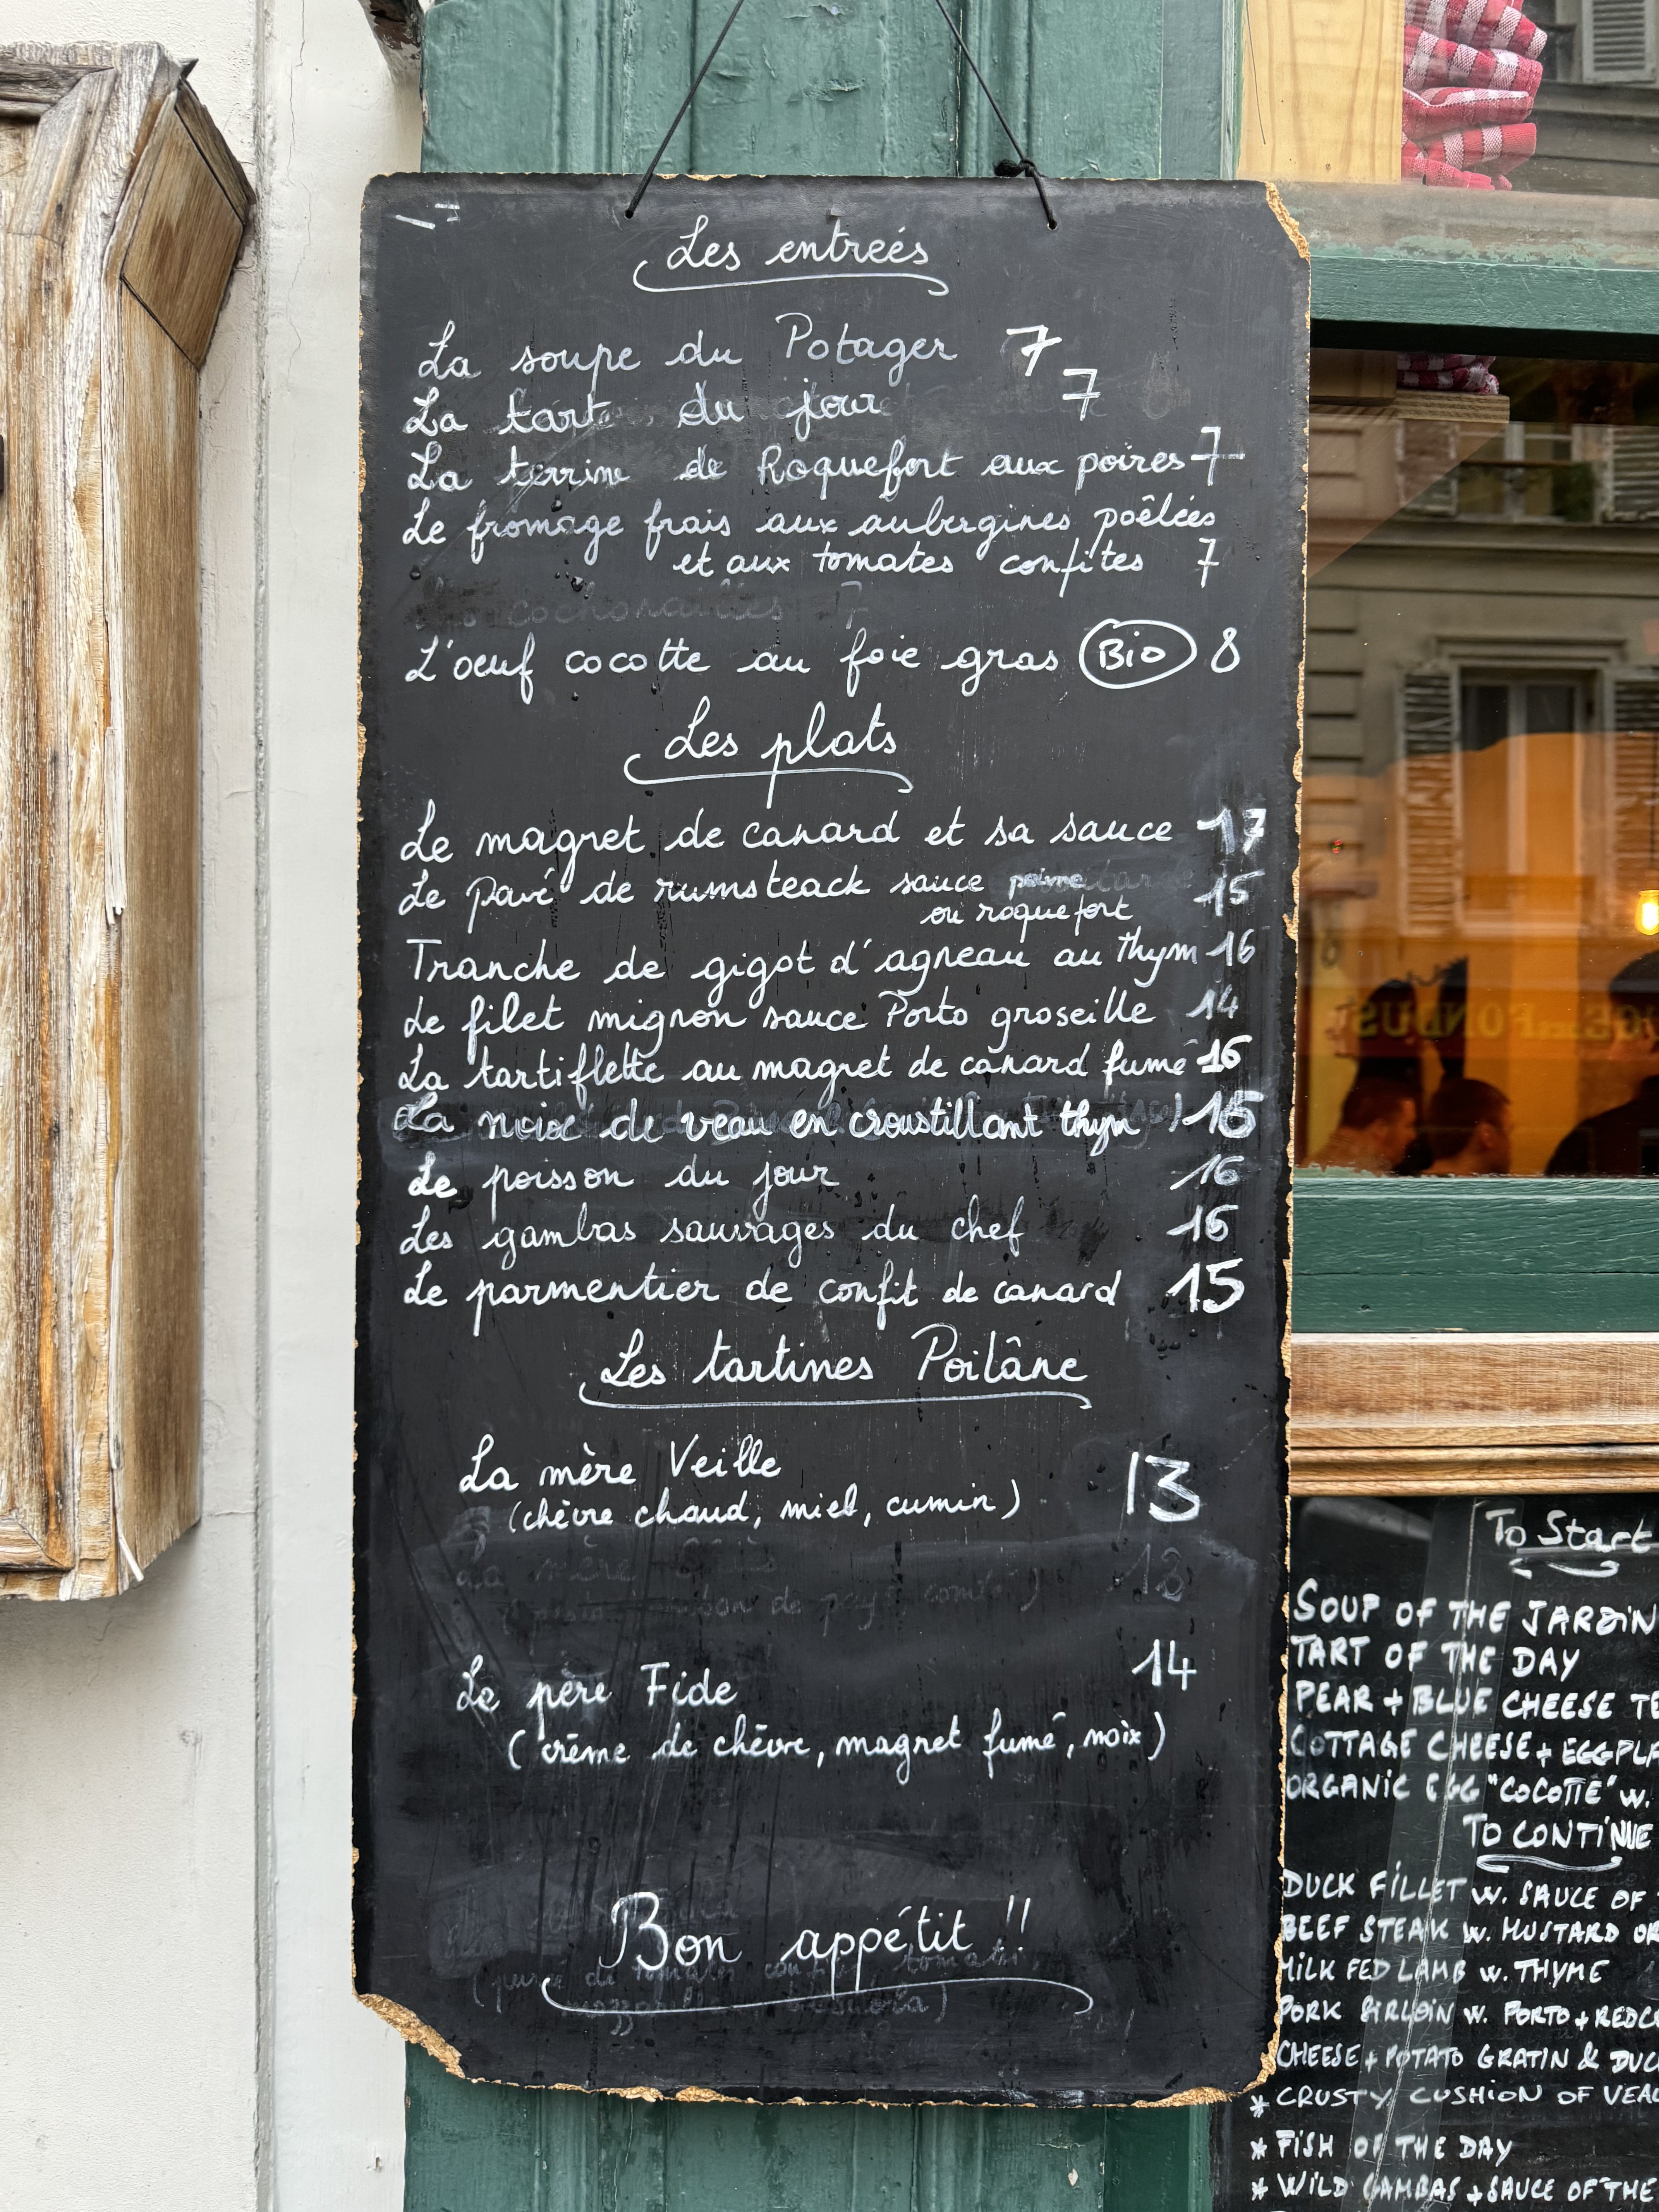 Les entreés
La soupe du Potager 7
La tarte du jour 7
La terrine de Roquefort aux poires 7
Le fromage frais aux aubergines poêlées
et aux tomates confites 7
cochonailles 7
L'oeuf cocotte au foie gras Bio 8
Les plats
Le magret de canard et sa sauce 17
Le pavé de rumsteack sauce poivre 15
ou roquefort
Tranche de gigot d'agneau au thym 16
Le filet mignon sauce Porto groseille 14
La tartiflette au magret de canard fumé 16
La noix de veau en croustillant thym 16
Le poisson du jour 16
Les gambas sauvages du chef 16
Le parmentier de confit de canard 15
Les tartines Poilâne
La mère Veille 13
(chèvre chaud, miel, cumin)
La mère 13
de pays, comté)
Le père Fide 14
(crème de chèvre, magret fumé, noix)
Bon appétit !!
To Start
SOUP OF THE JARDIN
TART OF THE DAY
PEAR + BLUE CHEESE TE
COTTAGE CHEESE + EGGPLA
ORGANIC EGG "COCOTTE" W.
TO CONTINUE
DUCK FILLET W. SAUCE OF
BEEF STEAK W. MUSTARD OR
MILK FED LAMB W. THYME
PORK SIRLOIN W. PORTO + REDCU
CHEESE + POTATO GRATIN & DUC
* CRUSTY CUSHION OF VEAL
* FISH OF THE DAY
* WILD GAMBAS + SAUCE OF THE